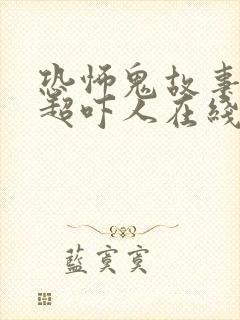 恐怖鬼故事
超吓人在线
藍寞寞